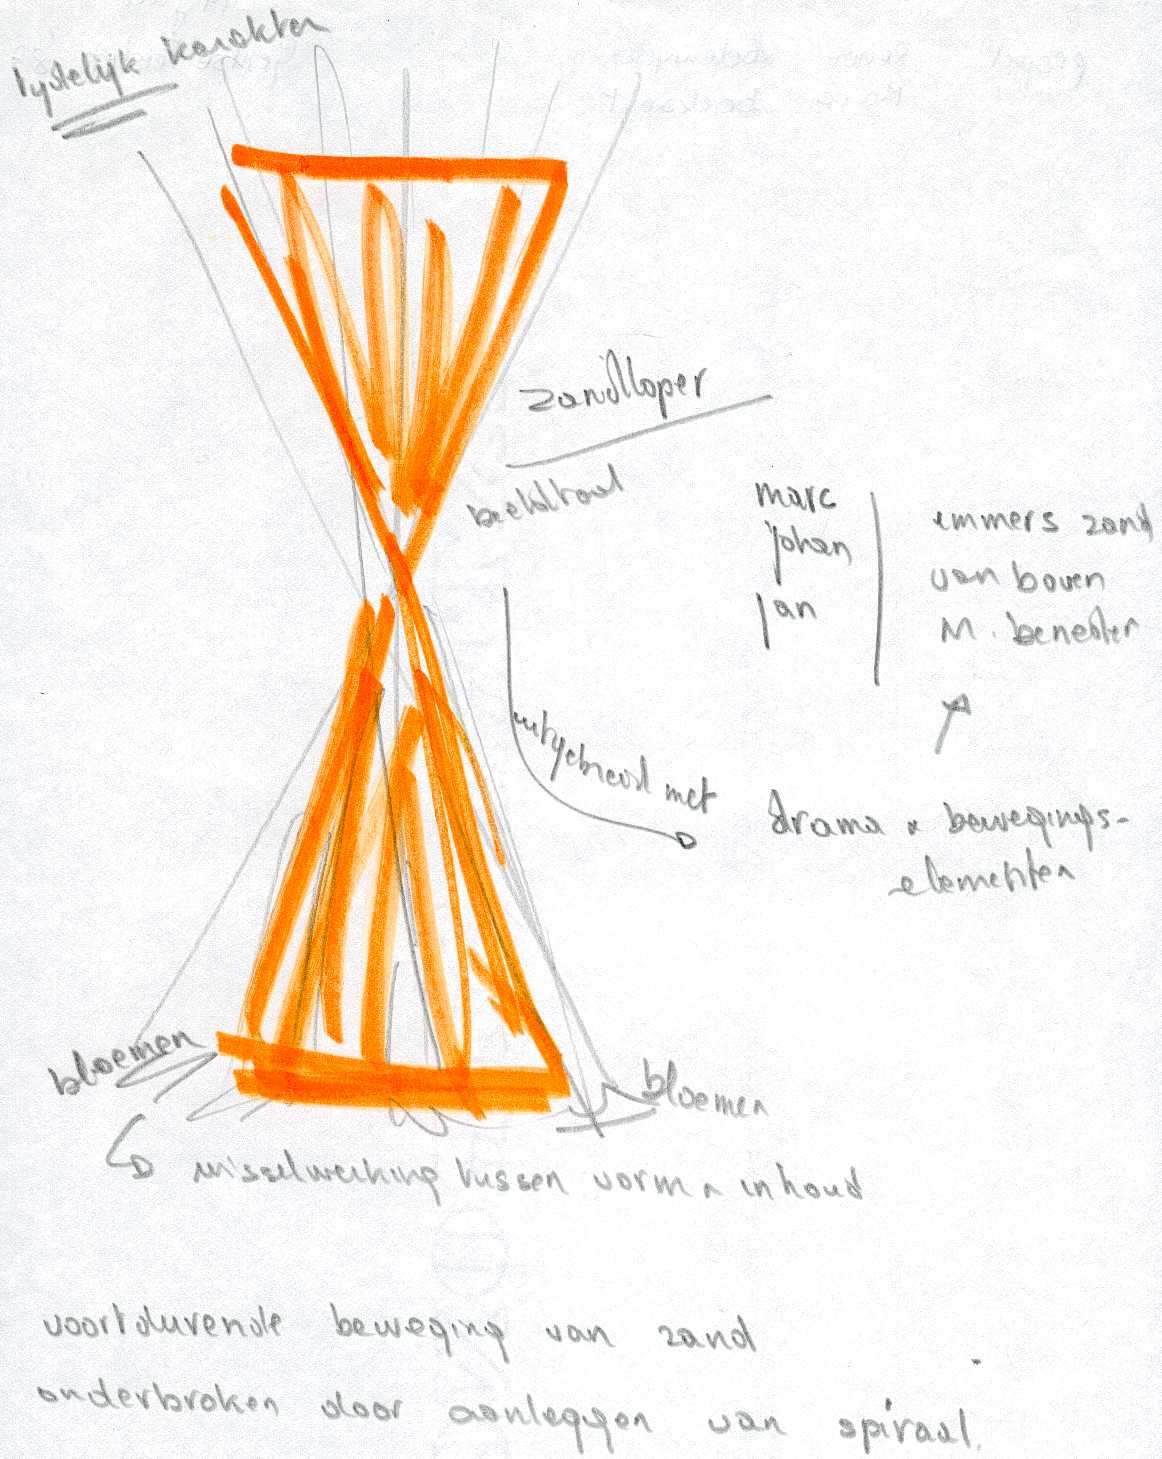 tydelijk karakter
zandloper
beeldtaal
marc
johan
jan
emmers zand
van boven
n. beneden
uitgebreid met
drama & bewegings-
elementen
bloemen
bloemen
wisselwerking tussen vorm & inhoud
voortdurende beweging van zand
onderbroken door aanleggen van spiraal.